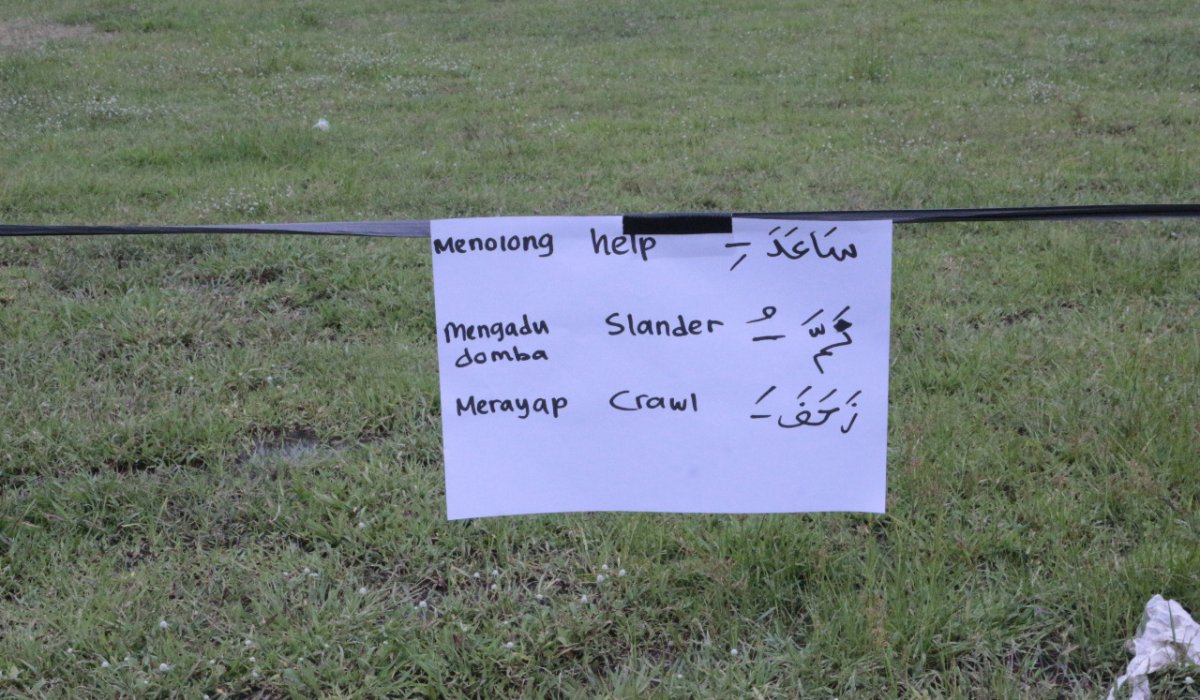 Menolong help سَاعَدَ ـِ
Mengadu Slander نَمَّ ـُ
domba
Merayap Crawl زَحَفَ ـَ